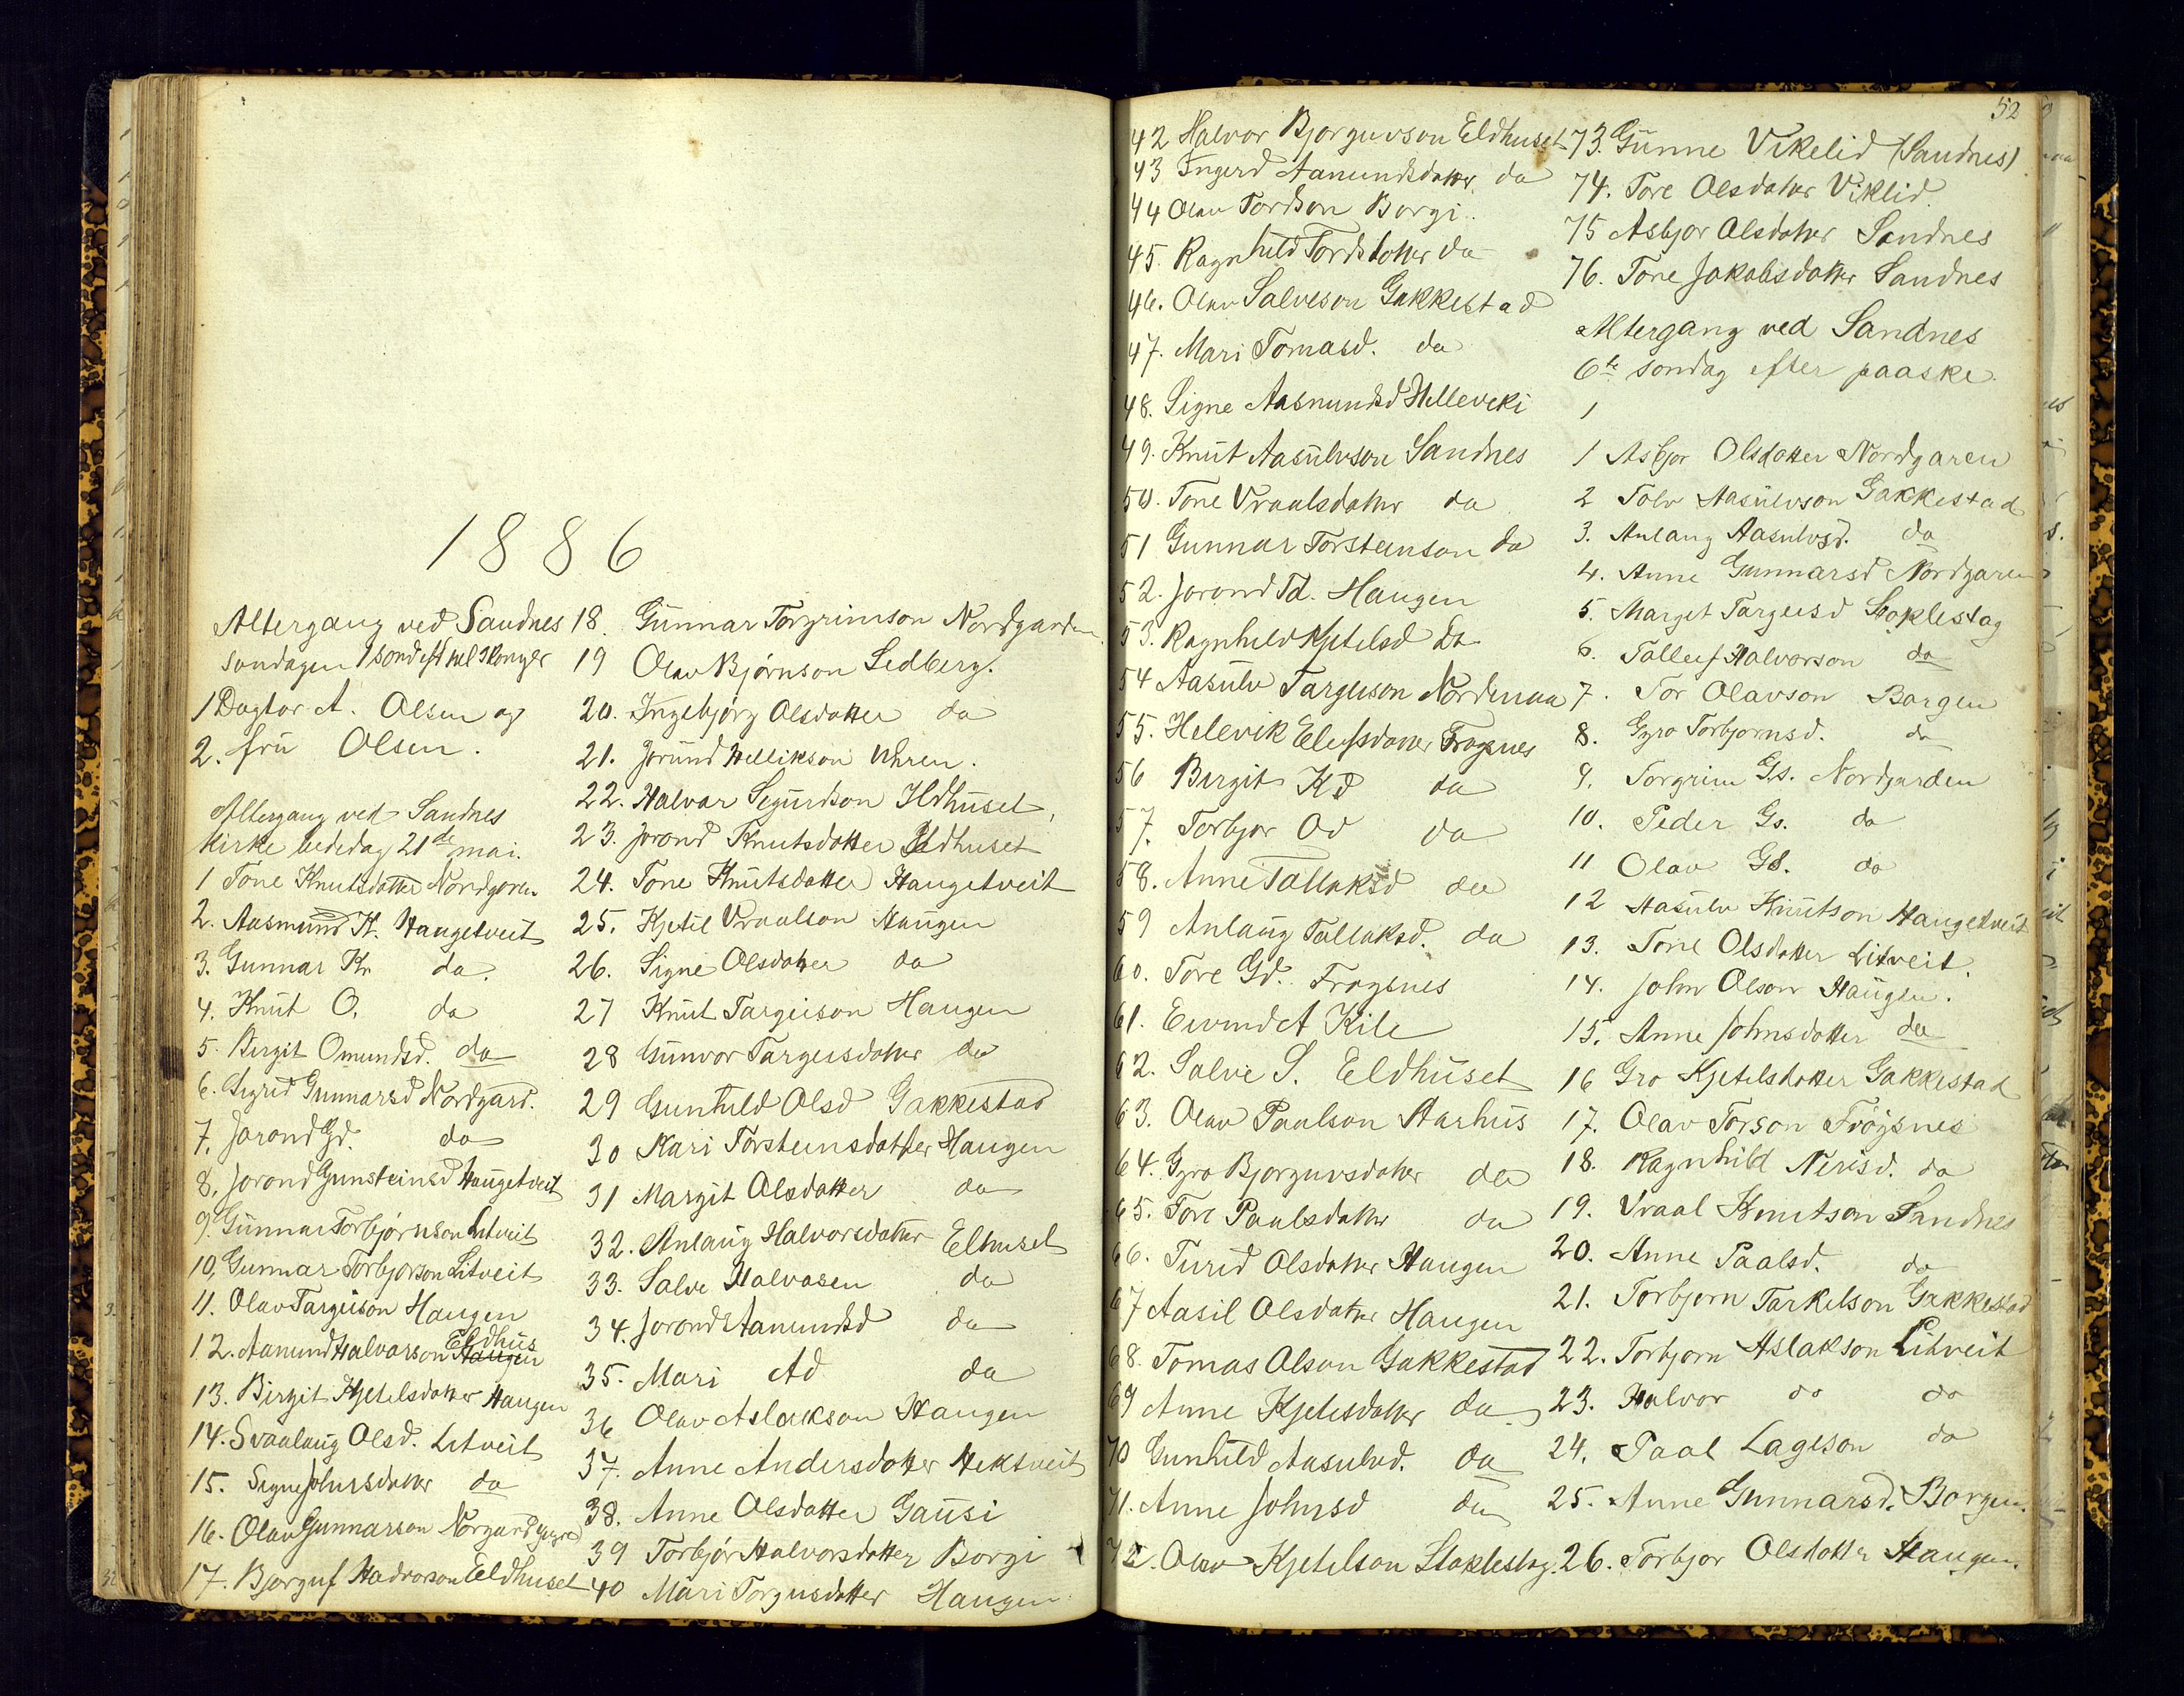 1886
Altergang ved Sandnes
søndagen 1 sønd eft hel 3konger
1 Dogtor A. Olsen og
2. frü Olsen.
Altergang ved Sandnes
kirke bededag 21de mai.
1 Tone Knutsdatter Nordgaren
2. Aasmund K. Haugetveit
3. Gunnar Kr do.
4. Knüt O. do
5. Birgit Omundsd. do
6. Sigrid Gunnarsd Nordgard.
7. Jorond Gd. do
8. Jorond Gunsteinsd Haugetveit
9. Gunnar Torbjørnson Litveit
10. Gunnar Torbjorson Litveit
11. Olav Targeison Haugen
12. Aanund Halvorson Eldhüs
13. Birgit Kjetelsdatter Haugen
14. Svaalaug Olsd. Litveit
15. Signe Johnsdatter do
16. Olav Gunnarson Norgard
17. Bjorguf Hadvorson Eldhuset
18. Günnar Torgrimson Nordgarden
19 Olav Bjørnson Ledberg.
20. Ingebjørg Olsdatter do
21. Jorund Hellikson Uhren.
22. Halvor Sigurdson Ildhuset
23. Jorond Knutsdatter Eldhuset
24. Tone Knütsdatter Haugetveit
25. Kjetil Vraalson Haugen
26. Signe Olsdatter do
27 Knut Targeison Haugen
28 Günvor Targeisdatter do
29 Gunhild Olsd Gakkestad
30 Kari Torsteinsdatter Haugen
31 Margit Olsdatter do
32. Anlaug Halvorsdatter Elhuset
33. Salve Halvosen do
34. Jorond Aanundsd do
35. Mari Ad do
36 Olav Aslakson Haugen
37. Anne Andersdatter Hektveit
38. Anne Olsdatter Gausi
39 Torbjør Halvorsdatter Borgi
40 Mari Torgusdatter Haugen
52
42 Halvor Bjorguvson Eldhuset
43 Ingerd Aanundsdatter do
44 Olav Tordson Borgi..
45. Ragnhild Tordsdotter do
46. Olav Salveson Gakkestad
47. Mari Tomasd. do
48. Signe Aasmundsd Helleveki
49. Knüt Aasülvson Sandnes
50. Tone Vraalsdatter do
51 Gunnar Torsteinson do
52. Jorond Td. Haugen
53. Ragnhild Kjetelsd Do
54 Aasülv Targeison Nordenaa
55. Helevik Elefsdatter Frogsnes
56 Birgit Kd do
57. Torbjor Od do
58. Anne Tallaksd do
59 Anlaug Tallaksd. do
60. Tore Gd. Frogsnes
61. Eivind A Kile
62. Salve S. Eldhüset
63. Olav Paulson Aarhus
64. Gyro Bjorguvsdatter do
65. Tore Paulsdatter do
66. Turid Olsdatter Haugen
67 Aasil Olsdatter Haugen
68. Tomas Olson Gakkestad
69 Anne Kjetilsdatter do
70 Gunhild Aasulvd. do
71. Anne Johnsd do
72. Olav Kjetelson Stoklestog.
73. Günne Vikelid (Sandnes)
74. Tore Olsdatter Viklid
75 Asbjor Olsdatter Sandnes
76. Tone Jakobsdatter Sandnes
Altergang ved Sandnes
6te søndag efter paaske.
1
1 Asbjor Olsdatter Nordgaren
2 Tolv Aasülvson Gakkestad
3. Anlaug Aasulvsd. do
4. Anne Gunnarsd Nordgaren
5. Margit Targeisd Stoklestog
6. Tallef Halvorson do
7. Tor Olavson Borgen
8. Gyro Torbjornsd. do
9. Torgrim Gs. Nordgarden
10. Peder Gs. do
11 Olav GS. do
12 Aasülv Knütson Haugetveit
13. Tone Olsdatter Litveit.
14. John Olson Haügen.
15. Anne Johnsdotter do
16 Gro Kjetelsdatter Gakkestad
17. Olav Torson Frögsnes
18. Ragnhild Nerisd. do
19. Vraal Knutson Sandnes
20. Anne Paalsd. do
21. Torbjorn Tarkelson Gakkestad
22. Torbjorn Aslakson Litveit
23. Halvor do do
24. Paal Lageson do
25. Anne Gunnarsd. Borgen.
26. Torbjor Olsdotter Haugen.